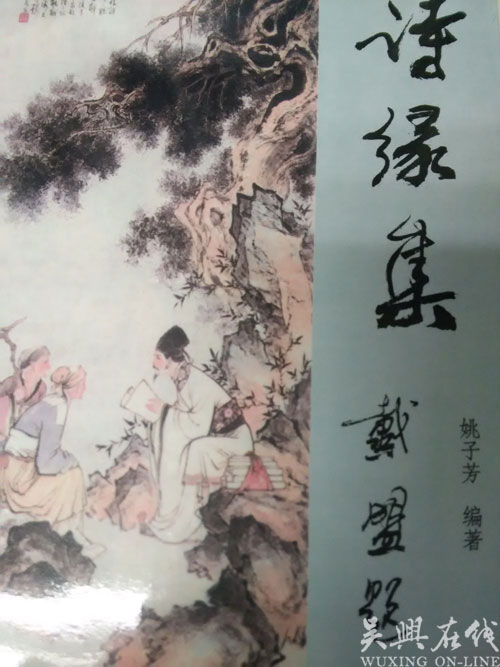 诗缘集
戴盟题
姚子芳 编著
吴興在线
WUXING ON-LINE